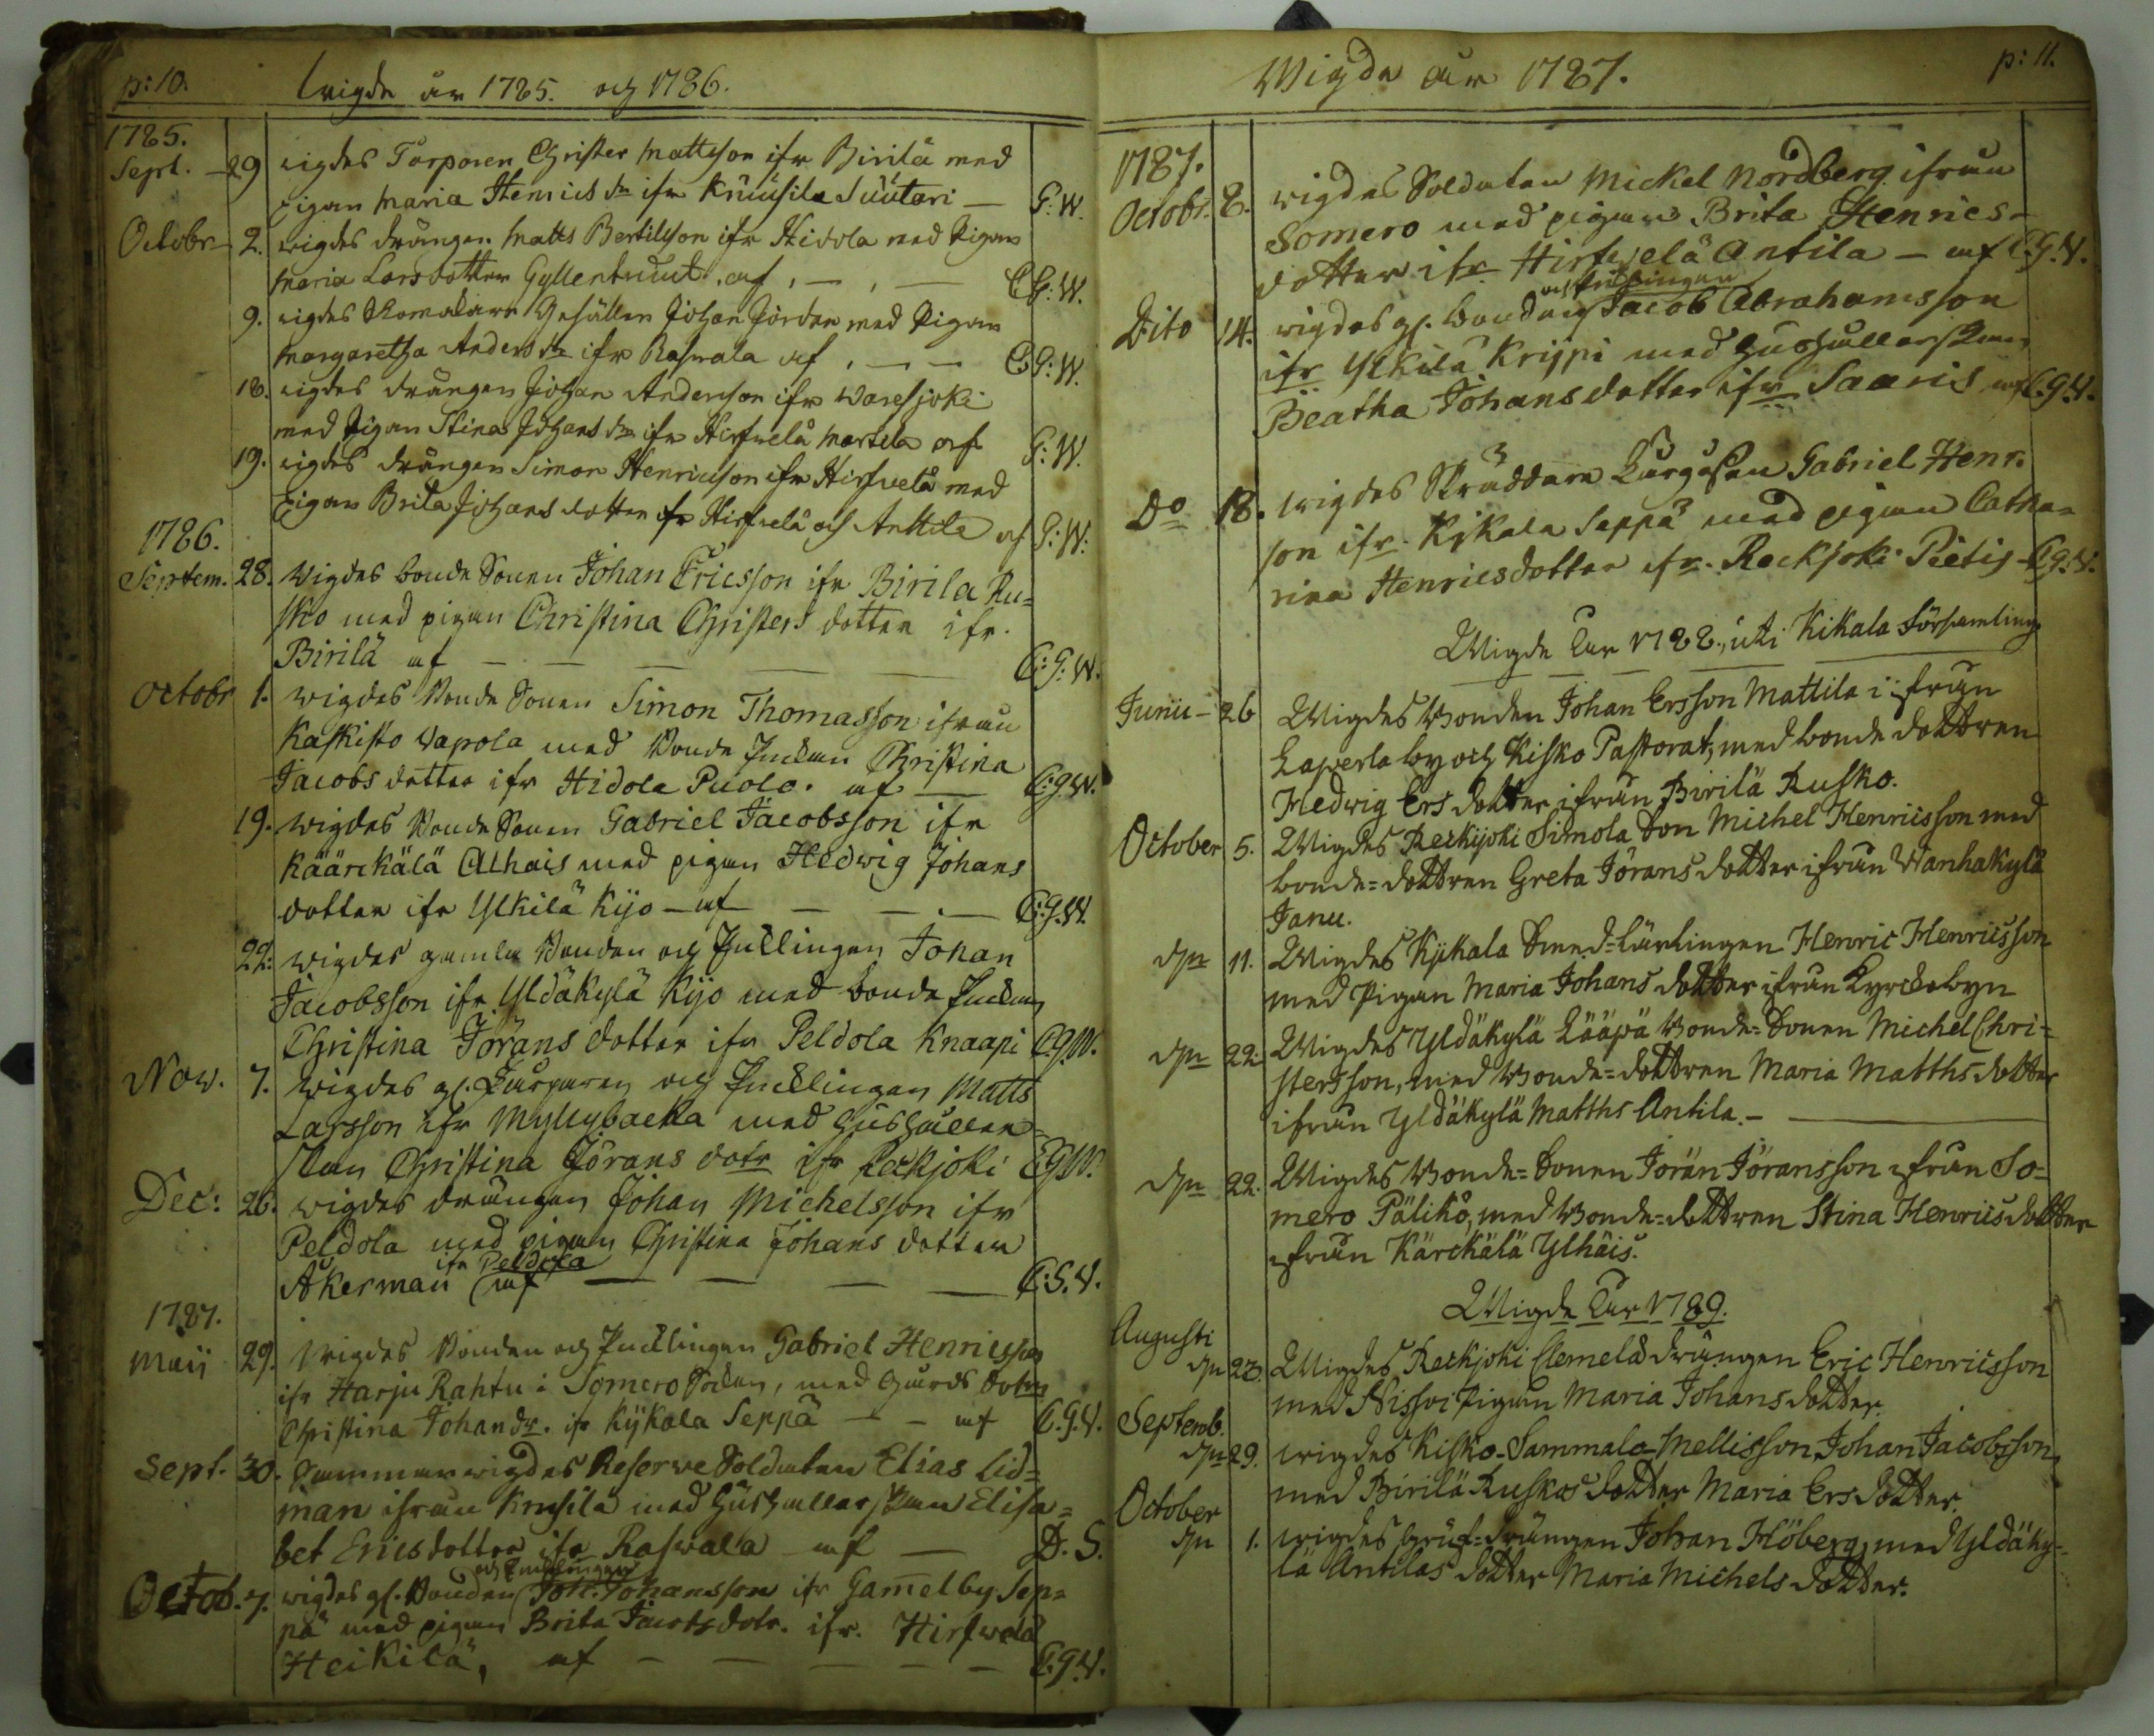 p: 10. wigde år 1785. och 1786.
1785.
Sept. - 29 wigdes Torparen Christer Mattsson ifr Birilä med
Pigan Maria Henrics dr ifr Kruusila Suutari - G: W.
Octobr - 2. wigdes drängen Matts Bertilsson ifr Hidola med Pigan
Maria Larsdotter af , - , - C G: W.
9. wigdes Gesällen Johan Jordan med Pigan
Margaretha Anders dr ifr Raswala af , - - C G: W.
18. wigdes drängen Johan Andersson ifr Waresjoki
med Pigan Stina Johans dr ifr Hirfwelä Martila af G: W.
19. wigdes drängen Simon Henricsson ifr Hirfwelä med
Pigan Brita Johans dotter ifr Hirfwelä och Anttila af G: W:
1786.
Septem. 28. Wigdes bonde Sonen Johan Ericsson ifr Birila Ru=
sko med pigan Christina Christers dotter ifr.
Birilä af - - - - C: G: W.
Octobr 1. wigdes Bonde Sonen Simon Thomasson ifrån
Kaskisto Wapola med Bonde Enckan Christina
Jacobs dotter ifr Hidola Puolo. af - C: G. W.
19. wigdes Bonde Sonen Gabriel Jacobsson ifr
Käärckälä Alhais med pigan Hedwig Johans
dotter ifr Ylkilä Kijo - af - - - C: G. W.
22: wigdes gamla Bonden och Encklingen Johan
Jacobsson ifr Yldäkylä Kijo med bonde Enckan
Christina Jörans dotter ifr Peldola Knaapi C. G. W.
Now. 7. wigdes gl. Torparen och Encklingen Matts
Larsson ifr Myllybacka med Hushåller=
skan Christina Jörans dotr ifr Reckjoki C. G. W.
Dec: 26. wigdes drängen Johan Michelsson ifr
Peldola med pigan Christina Johans dotter
ifr Peldola
Åkerman af - - - - C: G. W.
1787.
Maij 29. Wigdes Bonden och Encklingen Gabriel Henricsson
ifr Harju Rahtu i Somero Soken, med Gårds dotren
Christina Johandr. ifr Kÿkala Seppä - - af C. G. W.
Sept. 30. Sammanwigdes Reserwe Soldaten Elias Lid=
man ifrån Krusila med Hushållerskan Elisa=
bet Ericsdotter ifr Raswala af - D. S.
och Encklingen
Octob. 7. wigdes gl. Bonden Joh: Johansson ifr Gamelby Sep=
pä med pigan Brita Jacobsdotr. ifr. Hirfwelä
Heikilä, af - - - - - C. G. W.
Wigde år 1787. p: 11.
1787.
Octobr. 8. wigdes Soldaten Mickel Nordberg ifrån
Somero med pigan Brita Henrics-
dotter ifr Hirfwelä Antila - af C. G. W.
och Encklingen
Dito 14. wigdes gl. bonden Jacob Abrahamsson
ifr Ylkilä Krijpi med Hushållerskan
Beatha Johansdotter ifr Saaris af C. G. W.
Do 18. wigdes Skräddare Gabriel Henr.
son ifr. Kÿkala Seppä med pigan Catha=
rina Henricsdotter ifr. Reckjoki Pietis - C. G. W.
Wigde Åhr 1788., uti Kikala Församling
Junii - 26 Wigdes Bonden Johan Ersson Mattila ifrån
Laperla by och Kisko Pastorat, med bonde dottren
Hedwig Ers dotter ifrån Birilä Rusko.
October 5. Wigdes Reckijoki Simola Son Michel Henricsson med
bonde=dottren Greta Jörans dotter ifrån Wanhakylä
Janu.
dn 11. Wigdes Kÿkala Smed=Lärlingen Henric Henricsson
med Pigan Maria Johans dotter ifrån Kyrckobyn
dn 22. Wigdes Yldäkylä Lääpä Bonde=Sonen Michel Chri=
stersson, med Bonde=dottren Maria Matths dotter
ifrån Yldäkylä Matths Antila. -
dn 22. Wigdes Bonde=Sonen Jöran Jöransson ifrån So=
mero Päliko, med Bonde=dottren Stina Henrics dotter
ifrån Kärckälä Ylhäis.
Wigde Åhr 1789.
Augusti
dn 23. Wigdes Reckjoki Clemelä drängen Eric Henricsson
med Nissoi Pigan Maria Johans dotter.
Septemb.
dn 29. wigdes Kisko-Sammalo-Mellisson Johan Jacobsson,
med Birilä Ruskos dotter Maria Ers dotter.
October
dn 1. wigdes bruk=drängen Johan Höberg, med Yldäky=
lä Antilas dotter Maria Michels dotter.